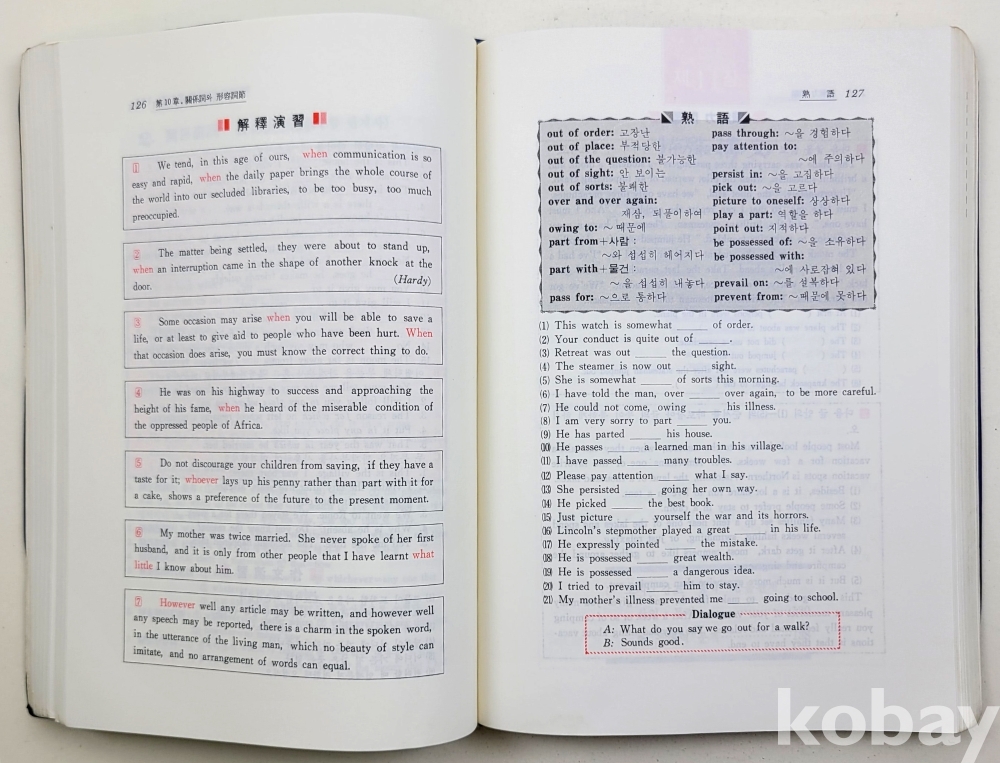 126 第10章. 關係詞와 形容詞節
解釋演習
① We tend, in this age of ours, when communication is so
easy and rapid, when the daily paper brings the whole course of
the world into our secluded libraries, to be too busy, too much
preoccupied.
② The matter being settled, they were about to stand up,
when an interruption came in the shape of another knock at the
door. (Hardy)
③ Some occasion may arise when you will be able to save a
life, or at least to give aid to people who have been hurt. When
that occasion does arise, you must know the correct thing to do.
④ He was on his highway to success and approaching the
height of his fame, when he heard of the miserable condition of
the oppressed people of Africa.
⑤ Do not discourage your children from saving, if they have a
taste for it; whoever lays up his penny rather than part with it for
a cake, shows a preference of the future to the present moment.
⑥ My mother was twice married. She never spoke of her first
husband, and it is only from other people that I have learnt what
little I know about him.
⑦ However well any article may be written, and however well
any speech may be reported, there is a charm in the spoken word,
in the utterance of the living man, which no beauty of style can
imitate, and no arrangement of words can equal.
熟 語 127
熟 語
out of order: 고장난
out of place: 부적당한
out of the question: 불가능한
out of sight: 안 보이는
out of sorts: 불쾌한
over and over again:
재삼, 되풀이하여
owing to: ～ 때문에
part from+사람:
～와 섭섭히 헤어지다
part with+물건:
～을 섭섭히 내놓다
pass for: ～으로 통하다
pass through: ～을 경험하다
pay attention to:
～에 주의하다
persist in: ～을 고집하다
pick out: ～을 고르다
picture to oneself: 상상하다
play a part: 역할을 하다
point out: 지적하다
be possessed of: ～을 소유하다
be possessed with:
～에 사로잡혀 있다
prevail on: ～를 설복하다
prevent from: ～때문에 못하다
(1) This watch is somewhat _____ of order.
(2) Your conduct is quite out of _____.
(3) Retreat was out _____ the question.
(4) The steamer is now out _____ sight.
(5) She is somewhat _____ of sorts this morning.
(6) I have told the man, over _____ over again, to be more careful.
(7) He could not come, owing _____ his illness.
(8) I am very sorry to part _____ you.
(9) He has parted _____ his house.
(10) He passes _____ a learned man in his village.
(11) I have passed _____ many troubles.
(12) Please pay attention _____ what I say.
(13) She persisted _____ going her own way.
(14) He picked _____ the best book.
(15) Just picture _____ yourself the war and its horrors.
(16) Lincoln's stepmother played a great _____ in his life.
(17) He expressly pointed _____ the mistake.
(18) He is possessed _____ great wealth.
(19) He is possessed _____ a dangerous idea.
(20) I tried to prevail _____ him to stay.
(21) My mother's illness prevented me _____ going to school.
Dialogue
A: What do you say we go out for a walk?
B: Sounds good.
kobay